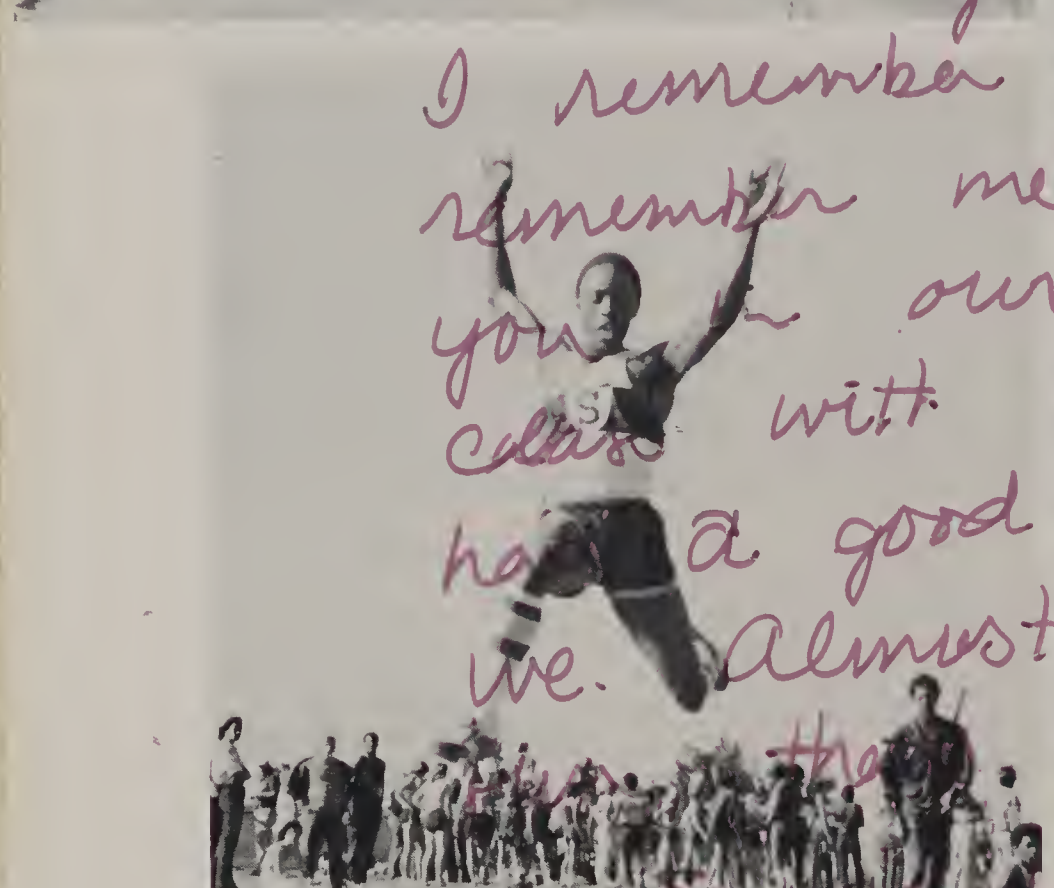 I remember
remember me
you in our
class with
have a good
we. Almost
fun they